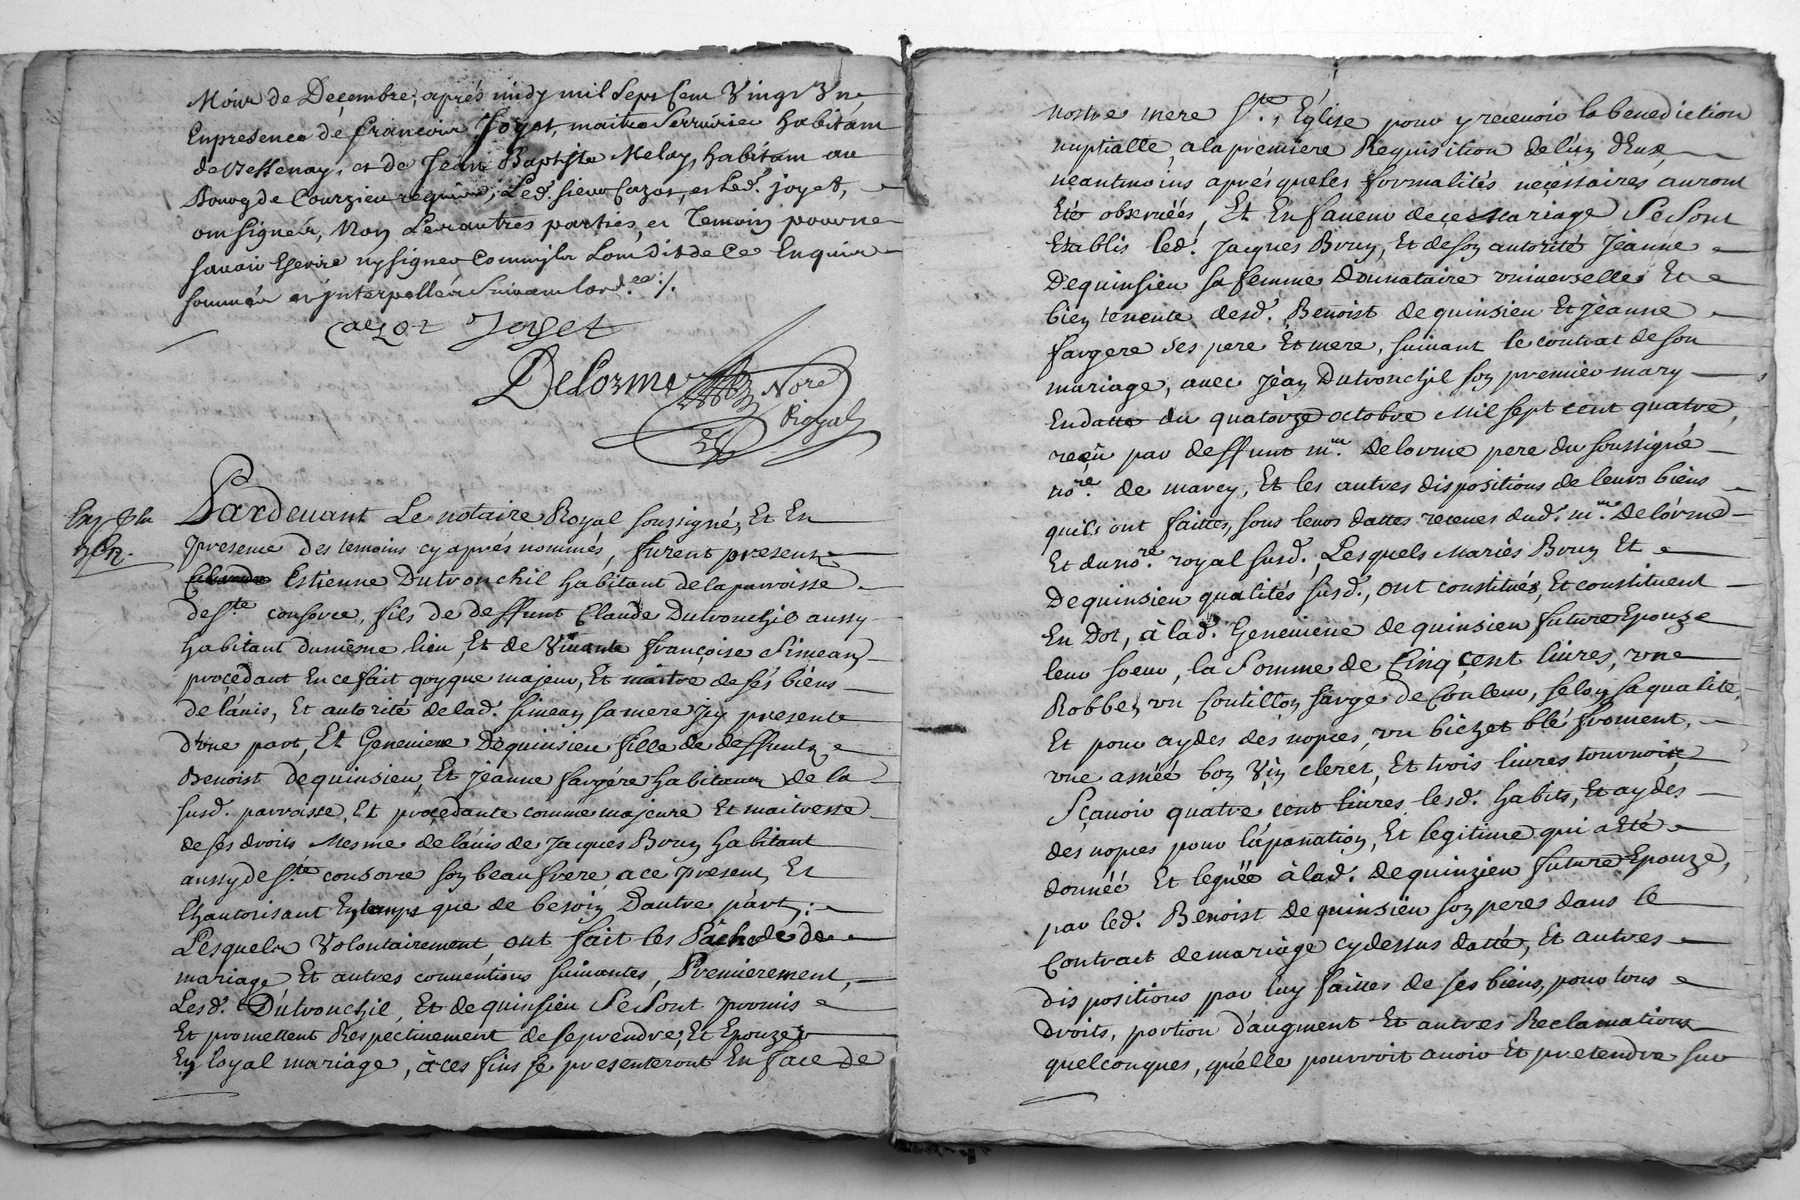 Mois de Decembre, aprés midy mil Sept Cent Vingt Un
En presence de francois Joyet, maitre Serrurier habitant
de Bessenay, et de Jean Baptiste Melay, habitant au
Bourg de Courzieu requis, Led. sieur Cazot, et Led. joyet,
ont signér, Non Les autres parties, et Temoin pour ne
savoir Escrire ny signer Comm'ils L'ont dit de Ce Enquis
sommés et Interpellés Suivant lord.ce ./.
Cazot Joyet
Delorme Nore
Royal
Pardevant Le notaire Royal soussigné, Et En
presence des temoins cy aprés nommés, furent presents
Estienne Dutronchil habitant de la parroisse
de Ste consorce, fils de deffunt Claude Dutronchil aussy
habitant du mesme lieu, Et de Vivante françoise Simean,
proçedant En ce fait qoyque majeur, Et maitre de sés biéns
de l'avis, Et autorité de lad. Simean sa mere Icy presente
d'vne part, Et Genevieve Dequinsieu fille de deffuntz
Benoist dequinsieu, Et Jeanne fargére habitans de la
susd. parroisse, Et proçedante comme majeure Et maitresse
de ses droits Mesme de l'avis de Jacques Brun habitant
aussy de Ste consorce son beaufrere a ce present, Et
l'hautorisant En tamps que de besoin D'autre párt;
Lesquels Volontairement ont fait les Pache de
mariage Et autres conventions suivantes, Premierement,
Lesd. Dutronchil, Et dequinsieu Se Sont promis
Et promettent Respectivement de se prendre, Et Epouzer
En loyal mariage, à ces fins se presenteront En face de
nostre mere Ste. Église pour y recevoir la benediction
nuptialle, a la premiere Requisition de l'un d'Eux,
neantmoins aprés que les formalités neçessaires auront
Eté obseruéés, Et En faveur de ce Mariage Se Sont
Etablis led. Jacques Brun, Et de son autorité Jeanne
Dequinsieu sa femme Donnataire vniverselle Et
bien tenente desd. Benoist dequinsieu Et Jeanne
fargere ses pere Et mere, suivant le contrat de son
mariage, avec Jean Dutronchil son premier mary
En datte du quatorze octobre Mil sept cent quatre,
reçu par deffunt me. Delorme pere du soussigné
nore. de marcy, Et les autres dispositions de leurs biens
quils ont faittes, sous leurs dattes receues dud. me. Delorme
Et du nore. royal susd., Lesquels Mariés Brun Et
Dequinsieu qualités susd., ont constitués, Et constituent
En Dot, à lad. Genevieve dequinsieu future Epouze
leur soeur, la Somme de Cinq çent livres, vne
Robbe, vn Coutillon sarge de Couleur, selon sa qualité,
Et pour aydes dés nopces, vn bichet blé froment,
vne asnéé bon Vin cleret, Et trois livres tournois,
Sçavoir quatre cent livres lesd. habits, Et aydes
des nopces pour l'ápanation, Et legitime qui a Eté
donnéé Et leguéé à lad. dequinzieu future Epouze,
par led. Benoist Dequinsieu son pere dans le
Contract de mariage cydessus datté, Et autres
dispositions par luy faittes de ses biens, pour tous
droits, portion d'augment Et autres Reclamations
quelconques, qu'elle pourroit avoir Et pretendre sur